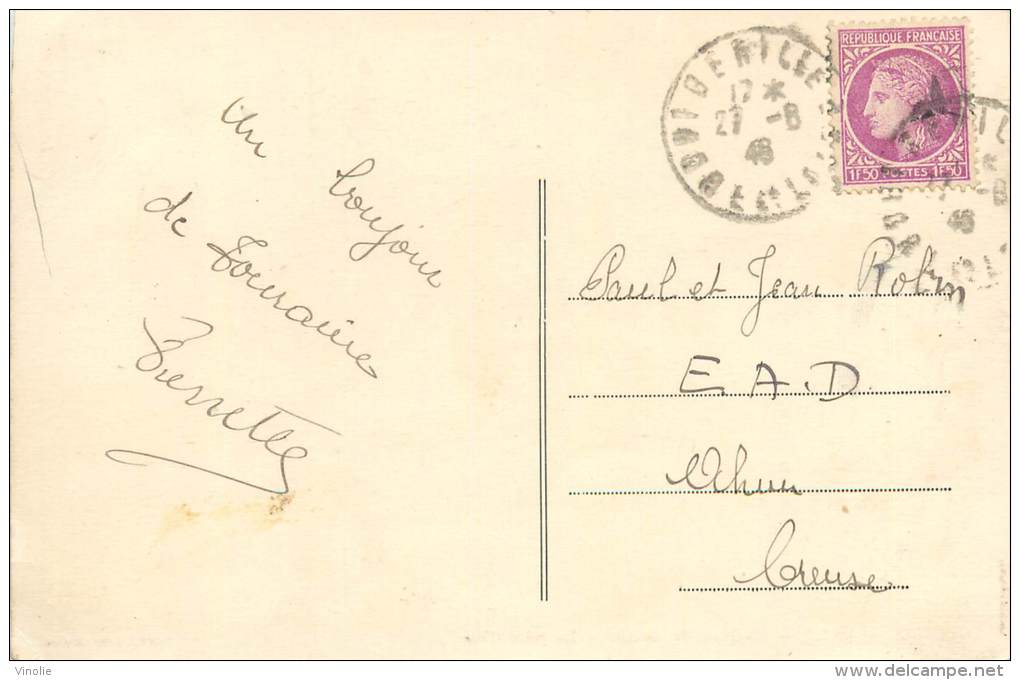 Un bonjour
de Touraine
Pierrette
RÉPUBLIQUE FRANÇAISE
1F50 POSTES 1F50
17 *
27 -8
46
Paul et Jean Robin
E.A.D.
Ahun
Creuse.
Vinolie
delcampe.net